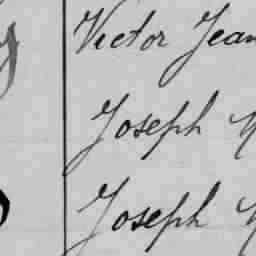 Victor Jean
Joseph
Joseph